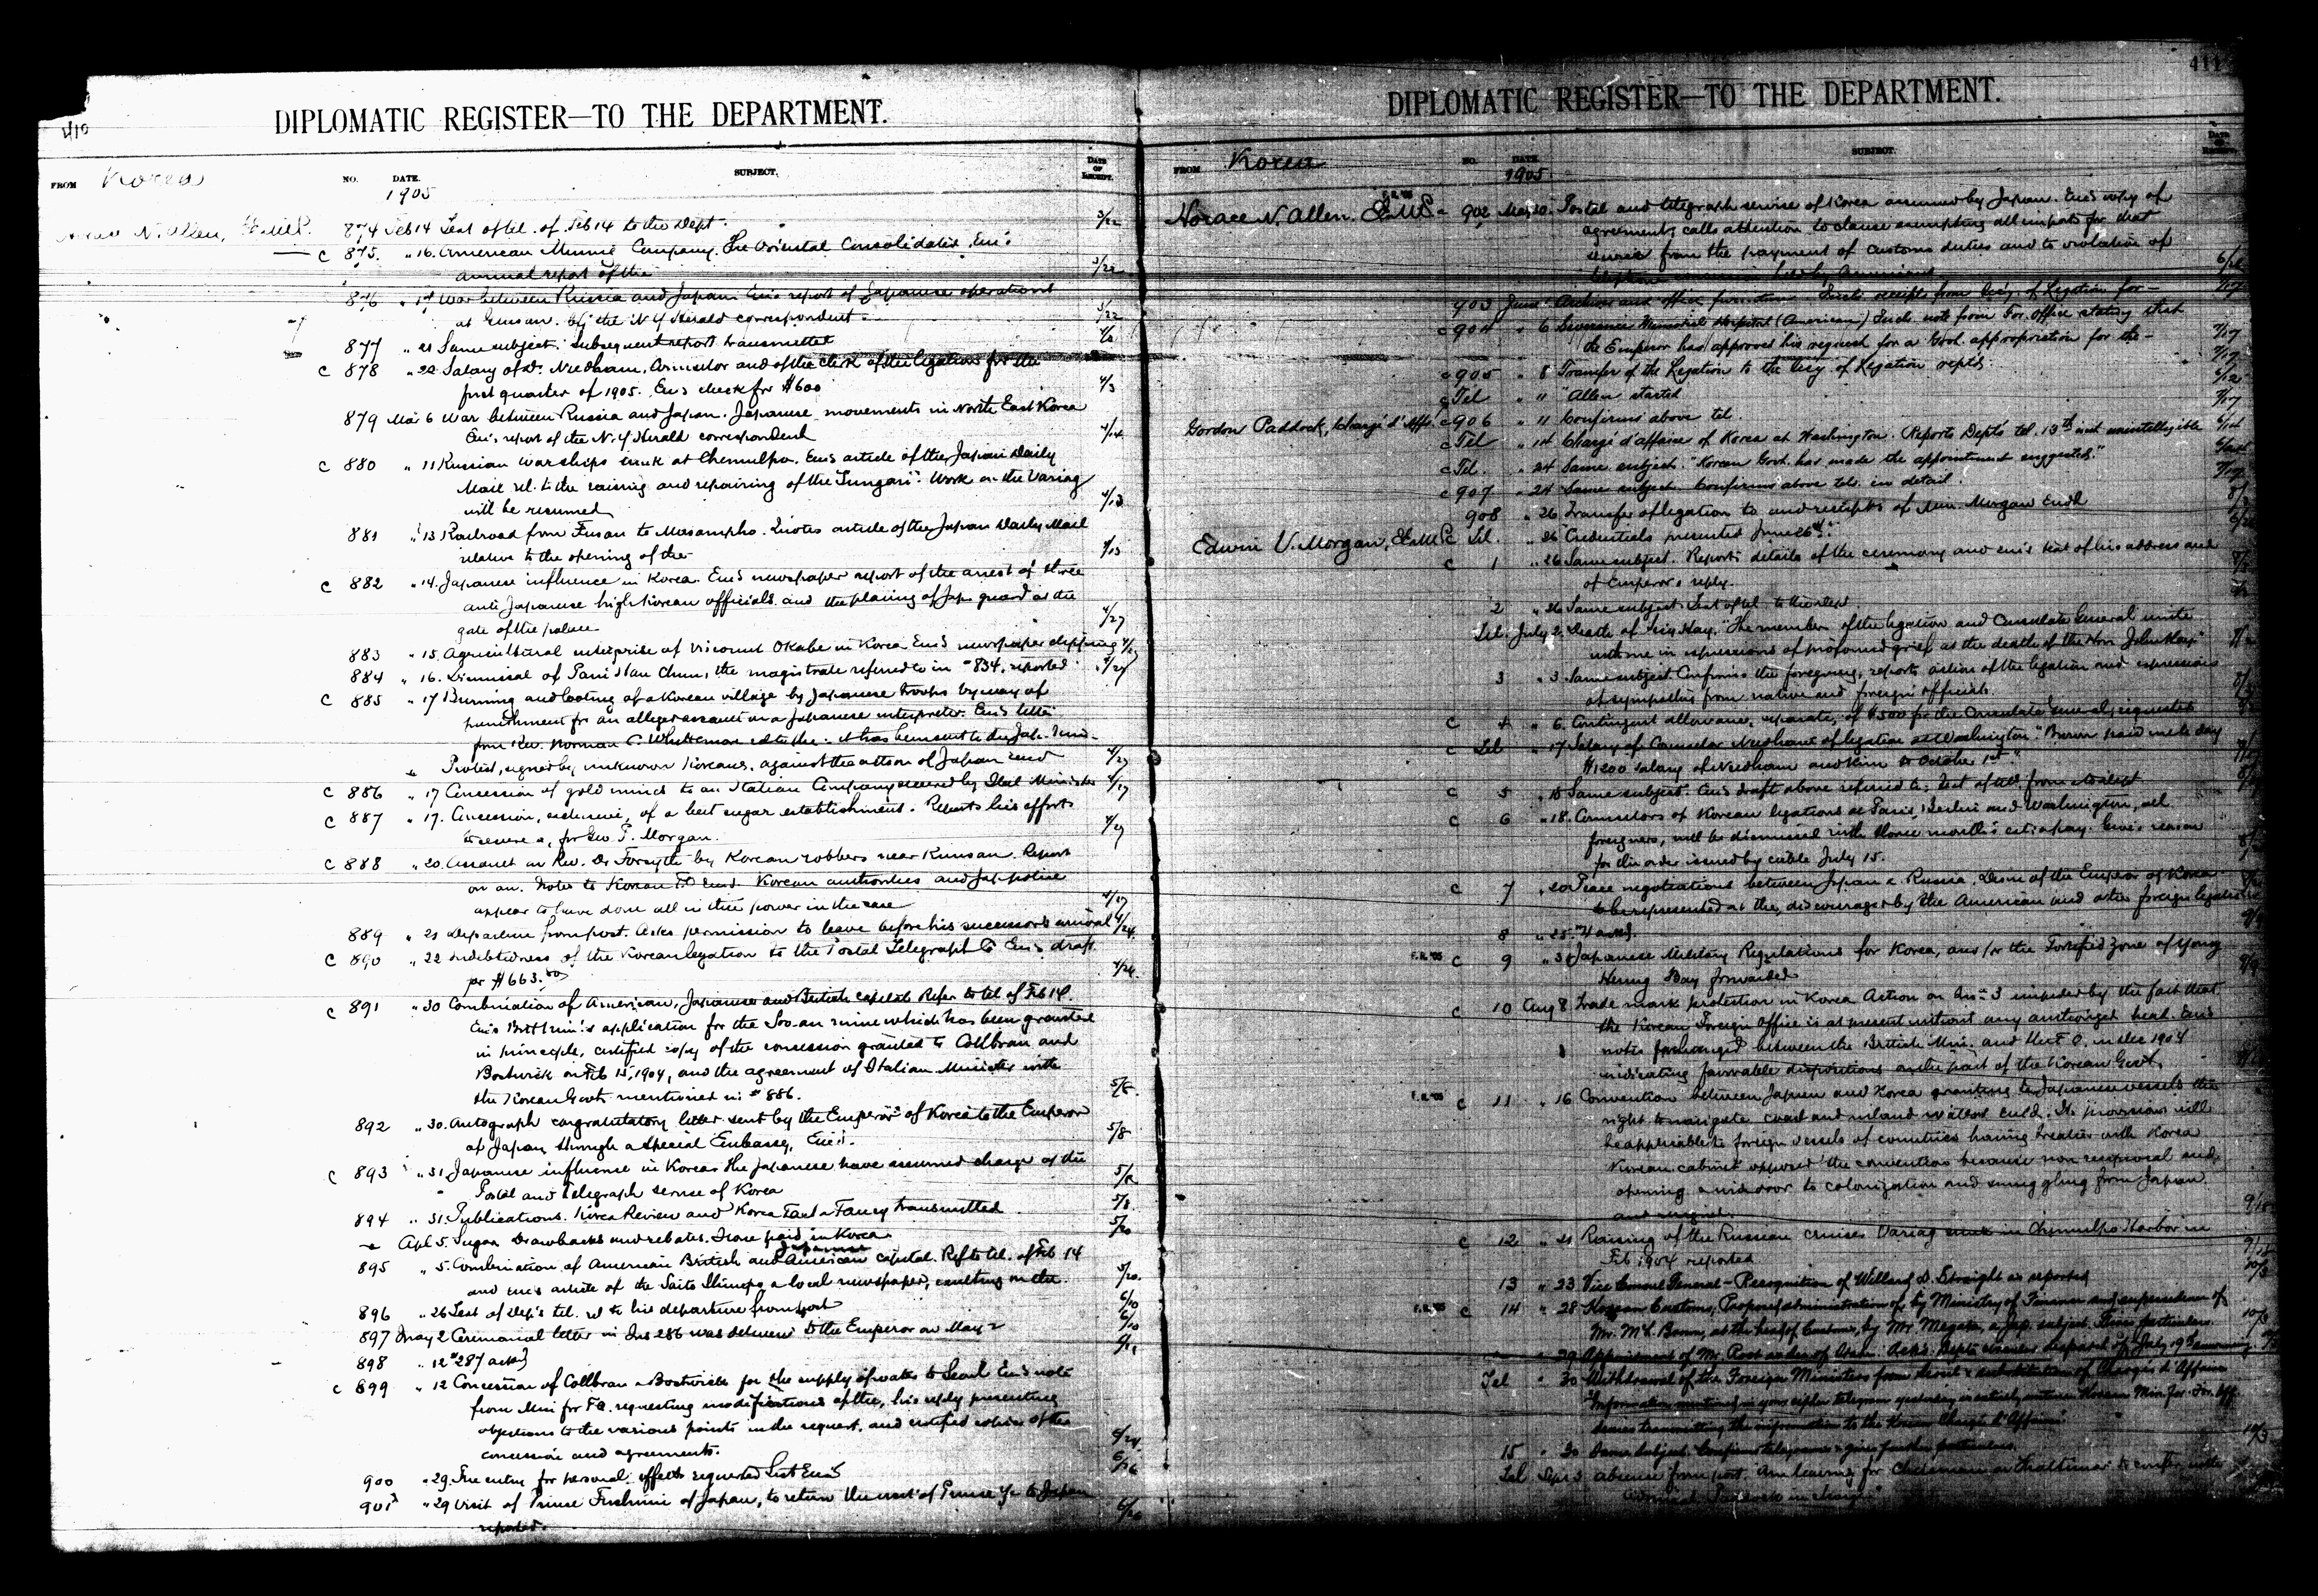 410
DIPLOMATIC REGISTER—TO THE DEPARTMENT.
FROM Korea
NO. DATE. SUBJECT. DATE OF RECEIPT.
1905
Horace N. Allen, E.E. & M.P.
874 Feb 14 Text of tel. of Feb 14 to the Dept. 3/22
c 875. " 16. American Mining Company, The Oriental Consolidated. Enc's
annual report of the 3/22
876 War between Russia and Japan. Enc's report of Japanese operations
at Gensan. by the N.Y. Herald correspondent 3/22
877 " 21 Same subject. Subsequent report transmitted
c 878 " 22 Salary of Mr. Needham, Councilor and of the clerk of the legation for the
first quarter of 1905. Enc's check for $600 4/3
879 Mar 6 War between Russia and Japan. Japanese movements in North East Korea
Enc's report of the N.Y. Herald correspondent 4/14
c 880 " 11 Russian warships sunk at Chemulpo. Enc's article of the Japan Daily
Mail rel. to the raising and repairing of the "Sungari". Work on the Variag
will be resumed 4/13
881 " 13 Railroad from Fusan to Masampho. Quotes article of the Japan Daily Mail
relative to the opening of the 4/13
c 882 " 14. Japanese influence in Korea. Enc's newspaper report of the arrest of three
anti Japanese high Korean officials and the placing of Jap. guard at the
gate of the palace 4/27
883 " 15. Agricultural enterprise of Viscount Okabe in Korea. Enc's newspaper clipping 4/27
884 " 16. Dismissal of Pani Han Chun, the magistrate referred to in #834, reported 4/27
c 885 " 17 Burning and looting of a Korean village by Japanese troops by way of
punishment for an alleged assault on a Japanese interpreter. Enc's letter
from Rev. Norman C. Whittemore rel. to the. It has been sent to the Jap. Min.
Protest, signed by unknown Koreans, against the action of Japan encd 4/27
c 886 " 17 Concession of gold mines to an Italian Company secured by Ital Minister 4/27
c 887 " 17. Concession, exclusive, of a beet sugar establishment. Reports his efforts
to secure a, for Geo. T. Morgan. 4/27
c 888 " 20. Assault on Rev. Dr Forsythe by Korean robbers near Kunsan. Report
on an. Notes to Korean F.O. encd. Korean authorities and Jap police
appear to have done all in their power in the case 4/27
889 " 21 Departure from post. Asks permission to leave before his successor's arrival 4/24.
c 890 " 22 Indebtedness of the Korean legation to the Postal Telegraph Co Enc's draft
for $663.50 4/24.
c 891 " 30 Combination of American, Japanese and British capital. Refer to tel of Feb 14.
Enc's Brit Min's application for the Soo-an mine which has been granted
in principle, certified copy of the concession granted to Collbran and
Bostwick on Feb 15, 1904, and the agreement of Italian Minister with
the Korean Govt mentioned in #886. 5/8.
892 " 30. Autograph congratulatory letter sent by the Emperor of Korea to the Emperor
of Japan, through a special Embassy, Enc's. 5/8
c 893 " 31 Japanese influence in Korea. The Japanese have assumed charge of the
Postal and telegraph service of Korea 5/8
894 " 31. Publications. Korea Review and Korea Fact & Fancy transmitted 5/8.
Apl 5. Sugar Drawbacks and rebates. None paid in Korea. 5/20
895 " 5. Combination of American British and Japanese capital. Ref to tel. of Feb 14
and enc's article of the Daito Shimpo a local newspaper, exulting in the. 5/20.
896 " 26 Text of Dep's tel. rel to his departure from post 6/10
897 May 2 Ceremonial letter in Ins 286 was delivered to the Emperor on May 2 6/10
898 " 12 #287 ackd
c 899 " 12 Concession of Collbran & Bostwick for the supply of water to Seoul. Enc's note
from Min for F.A. requesting modifications of the, his reply presenting
objections to the various points in the request, and certified copies of the
concession and agreements. 6/24
900 " 29. Free entry for personal effects requested List Enc'd 6/26
901 " 29 Visit of Prince Fushimi of Japan, to return the visit of Prince Ye to Japan
reported. 6/26
411
DIPLOMATIC REGISTER—TO THE DEPARTMENT.
FROM Korea
NO. DATE. SUBJECT. DATE OF RECEIPT.
1905
Horace N. Allen. E.E. & M.P.
F.R. '05
902 May 30. Postal and telegraph service of Korea assumed by Japan. Enc's copy of
agreement, calls attention to clause exempting all imports for that
service from the payment of customs duties and to violation of
by Americans
903 June 1 Archives and office furniture. Encls receipt from Sec'y. of Legation for
c 904 " 6 Severance Memorial Hospital (American) Encls note from For. Office stating that
the Emperor has approved his request for a Govt. appropriation for the 7/17
c 905 " 8 Transfer of the Legation to the Sec'y. of Legation reptd. 7/17
c Tel " " "Allen started 6/12
Gordon Paddock, Chargé d'Affs. c 906 " 11 Confirms above tel. 7/17
c Tel " 14 Chargé d'affaires of Korea at Washington. Reports Dept's tel. 13th inst unintelligible 6/14
c Tel. " 24 Same subject. "Korean Govt. has made the appointment suggested."
c 907 " 24 Same subject. Confirms above tels. in detail.
908 " 26 Transfer of legation to and receipts of Min. Morgan Encd
Edwin V. Morgan, E.E. & M.P. c Tel. " 26 "Credentials presented June 26th."
c 1 " 26 Same subject. Reports details of the ceremony and enc's text of his address and
of Emperor's reply.
2 " 26 Same subject. Text of tel. to the dept
Tel. July 2. Death of Sec'y Hay. "The members of the legation and Consulate General unite
with me in expressions of profound grief at the death of the Hon John Hay."
3 " 3 Same subject. Confirms the foregoing, reports action of the legation and expressions
of sympathy from native and foreign officials.
c 4 " 6. Contingent allowance, separate, of $500 for the Consulate General, requested
c Tel " 17 Salary of Counselor Needham of legation at Washington "Brown paid me to day
$1200 salary of Needham and Kim to October 1st."
c 5 " 18 Same subject. Enc's draft above referred to. Text of tel. from & to dept
c 6 " 18. Counselors of Korean legations at Paris, Berlin and Washington, all
foreigners, will be dismissed with three month's extra pay. Gives reason
for the order issued by cable July 15.
c 7 " 20 Peace negotiations between Japan & Russia. Desire of the Emperor of Korea
to be represented at the, discouraged by the American and other foreign legations
8 " 25. #4 ackd.
F.R. '05 c 9 " 31 Japanese Military Regulations for Korea, and for the Fortified zone of Yong
Heung Bay forwarded
c 10 Aug 8 Trade mark protection in Korea Action on Ins 3 impeded by the fact that
the Korean Foreign Office is at present without any authorized head. Enc's
notes exchanged between the British Min. and the F.O. in Dec 1904
indicating favorable dispositions on the part of the Korean Govt.
F.R. '05 c 11 " 16 Convention between Japan and Korea granting to Japanese vessels the
right to navigate coast and inland waters encld. Its provisions will
be applicable to foreign vessels of countries having treaties with Korea
Korean cabinet opposed the convention because non reciprocal and
opening a wide door to colonization and smuggling from Japan
and signed.
c 12 " 21 Raising of the Russian cruiser Variag sunk in Chemulpo Harbor in
Feb 1904 reported
13 " 23 Vice Consul General - Recognition of Willard D. Straight as reported
F.R. '05 c 14 " 28 Korean Customs, Proposed administration of, by Ministry of Finance and supersedence of
Mr. McL. Brown, as the head of Customs, by Mr. Megata, a Jap. subject. Gives particulars.
29 Appointment of Mr. Root as Sec of State. Ack's Dept's circular despatch of July 19th announcing
Tel " 30 Withdrawal of the Foreign Ministers from Seoul & substitution of Chargés d'Affaires
"Information mentioned in your cipher telegram yesterday is entirely untrue. Korean Min. for For. Aff.
denies transmitting the information to the Korean Chargé d'Affaires"
15 " 30 Same subject. Confirms telegrams & gives further particulars. 10/3
Tel Sept 3 Absence from post. "Am leaving for on to confer with
Paddock in charge"